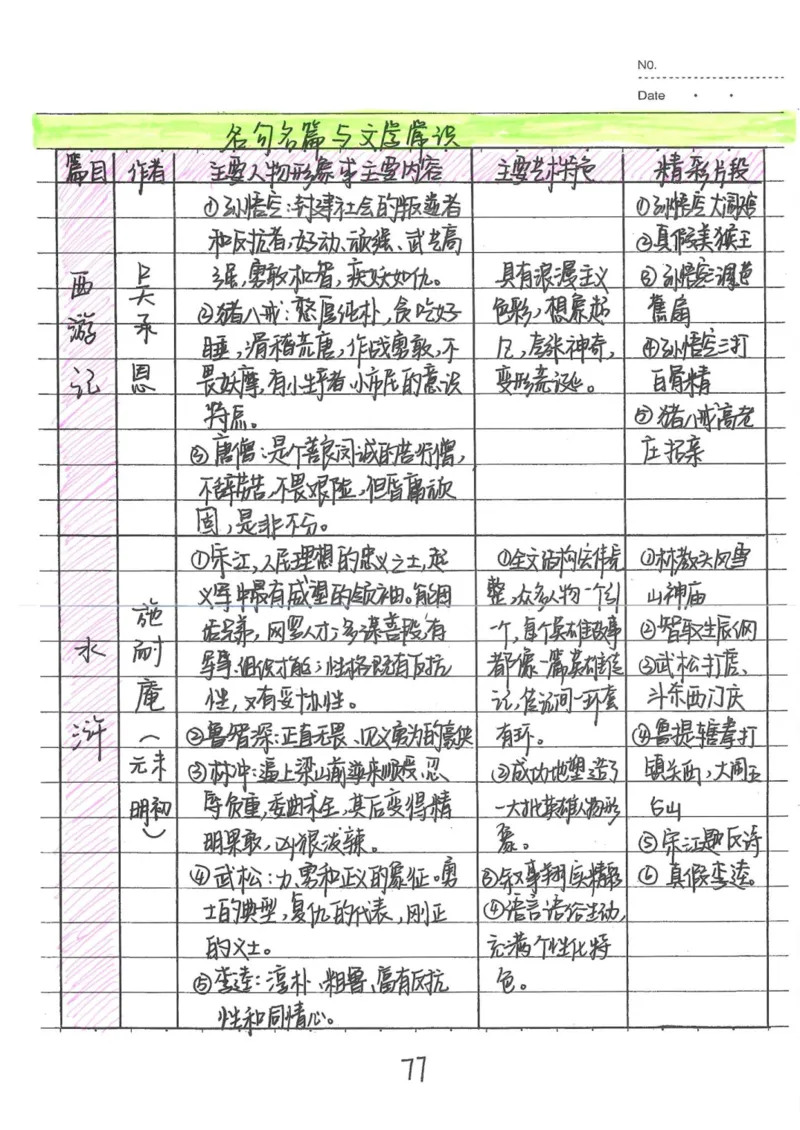 NO.
Date
名句名篇与文学常识
篇目
作者
主要人物形象或主要内容
主要艺术特色
精彩片段
西
游
记
吴
承
恩
①孙悟空：封建社会的叛逆者
和反抗者，好动、顽强、武艺高
强，勇敢机智，疾妖如仇。
②猪八戒：憨厚纯朴，贪吃好
睡，滑稽荒唐，作战勇敢，不
畏妖魔，有小生产者、小市民的意识
特点。
③唐僧：是个善良虔诚的苦行僧，
不辞劳苦，不畏艰险，但昏庸顽
固，是非不分。
具有浪漫主义
色彩，想象超
凡，夸张神奇，
变形荒诞。
①孙悟空大闹天宫
②真假美猴王
③孙悟空调芭
蕉扇
④孙悟空三打
白骨精
⑤猪八戒高老
庄招亲
水
浒
施
耐
庵
（
元末
明初
）
①宋江，人民理想的忠义之士，起
义军中最有威望的领袖。能团
结兄弟，网罗人才；多谋善段，有
军事、组织才能；性格既有反抗
性，又有妥协性。
②鲁智深：正直无畏、见义勇为的豪侠
③林冲：逼上梁山前逆来顺受、忍
辱负重，委曲求全，其后变得精
明果敢，凶狠泼辣。
④武松：力、勇和正义的象征。勇
士的典型，复仇的代表，刚正
的义士。
⑤李逵：淳朴、粗鲁、富有反抗
性和同情心。
①全文结构宏伟完
整，众多人物一个引
一个，每个英雄故事
都像一篇英雄传
记，传记间一环套
有环。
②成功地塑造了
一大批英雄人物形
象。
③叙事翔实精彩
④语言语俗生动，
充满个性化特
色。
①林教头风雪
山神庙
②智取生辰纲
③武松打虎、
斗杀西门庆
④鲁提辖拳打
镇关西，大闹五
台山
⑤宋江题反诗
⑥真假李逵。
77